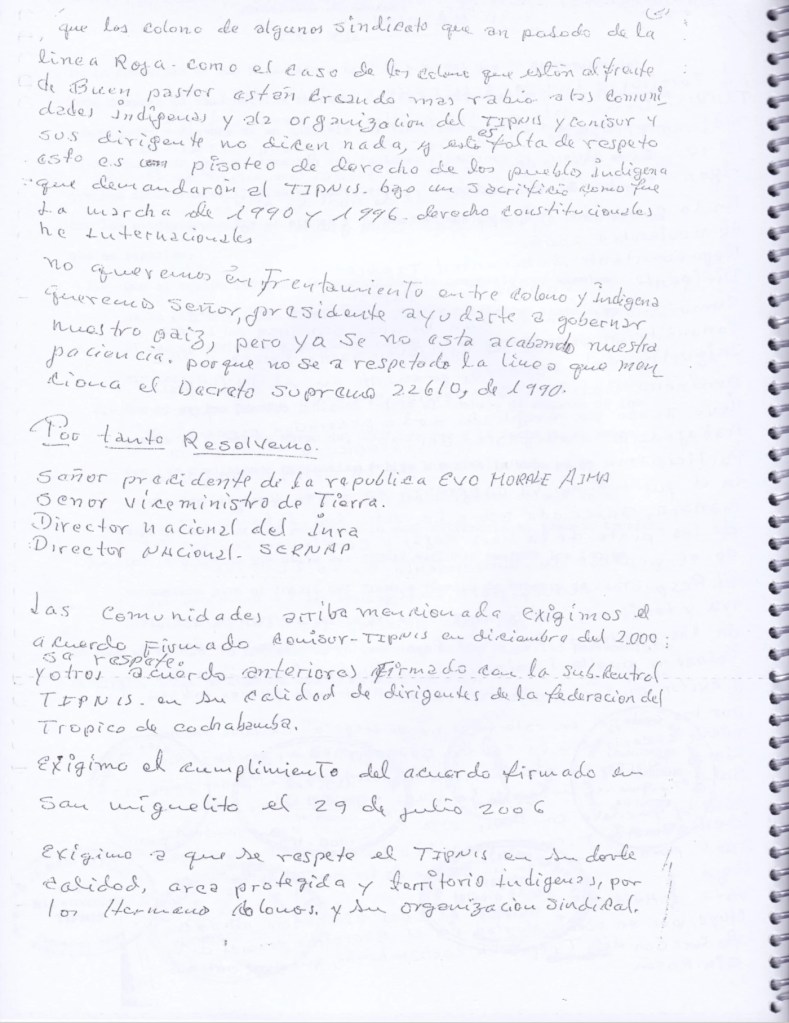 (5)
que los colono de algunos sindicato que an pasado de la
linea Roja. como el caso de los colono que están al frente
de Buen pastor están creando mas rabia a las comuni
dades indígenas y a la organización del TIPNIS y conisur y
sus dirigente no dicen nada, y esto es falta de respeto
esto es un pisoteo de derecho de los pueblos indigena
que demandarón el TIPNIS. bajo un sacrificio como fue
La marcha de 1990 y 1996. derecho constitucionales
he Internacionales
no queremos enfrentamiento entre colono y indigena
queremos señor, presidente ayudarte a gobernar
nuestro paiz, pero ya se no esta acabando nuestra
paciencia. porque no se a respetado la linea que men
ciona el Decreto Supremo 22610, de 1990.
Por tanto Resolvemo.
Señor precidente de la republica EVO MORALE AIMA
Senor viceministro de Tierra.
Director nacional del inra
Director NAcional. SERNAP
Las comunidades arriba mencionada exigimos el
acuerdo Firmado conisur-TIPNIS en diciembre del 2.000:
se respete.
y otros acuerdo anteriores Firmado con la sub.central
TIPNIS. en su calidad de dirigentes de la federacion del
Tropico de cochabamba.
Exigimo el cumplimiento del acuerdo firmado en
San miguelito el 29 de julio 2006
Exigimo a que se respete el TIPNIS en su doble
calidad, area protegida y territorio indigenas, por
los Hermano colonos. y su organizacion sindical.